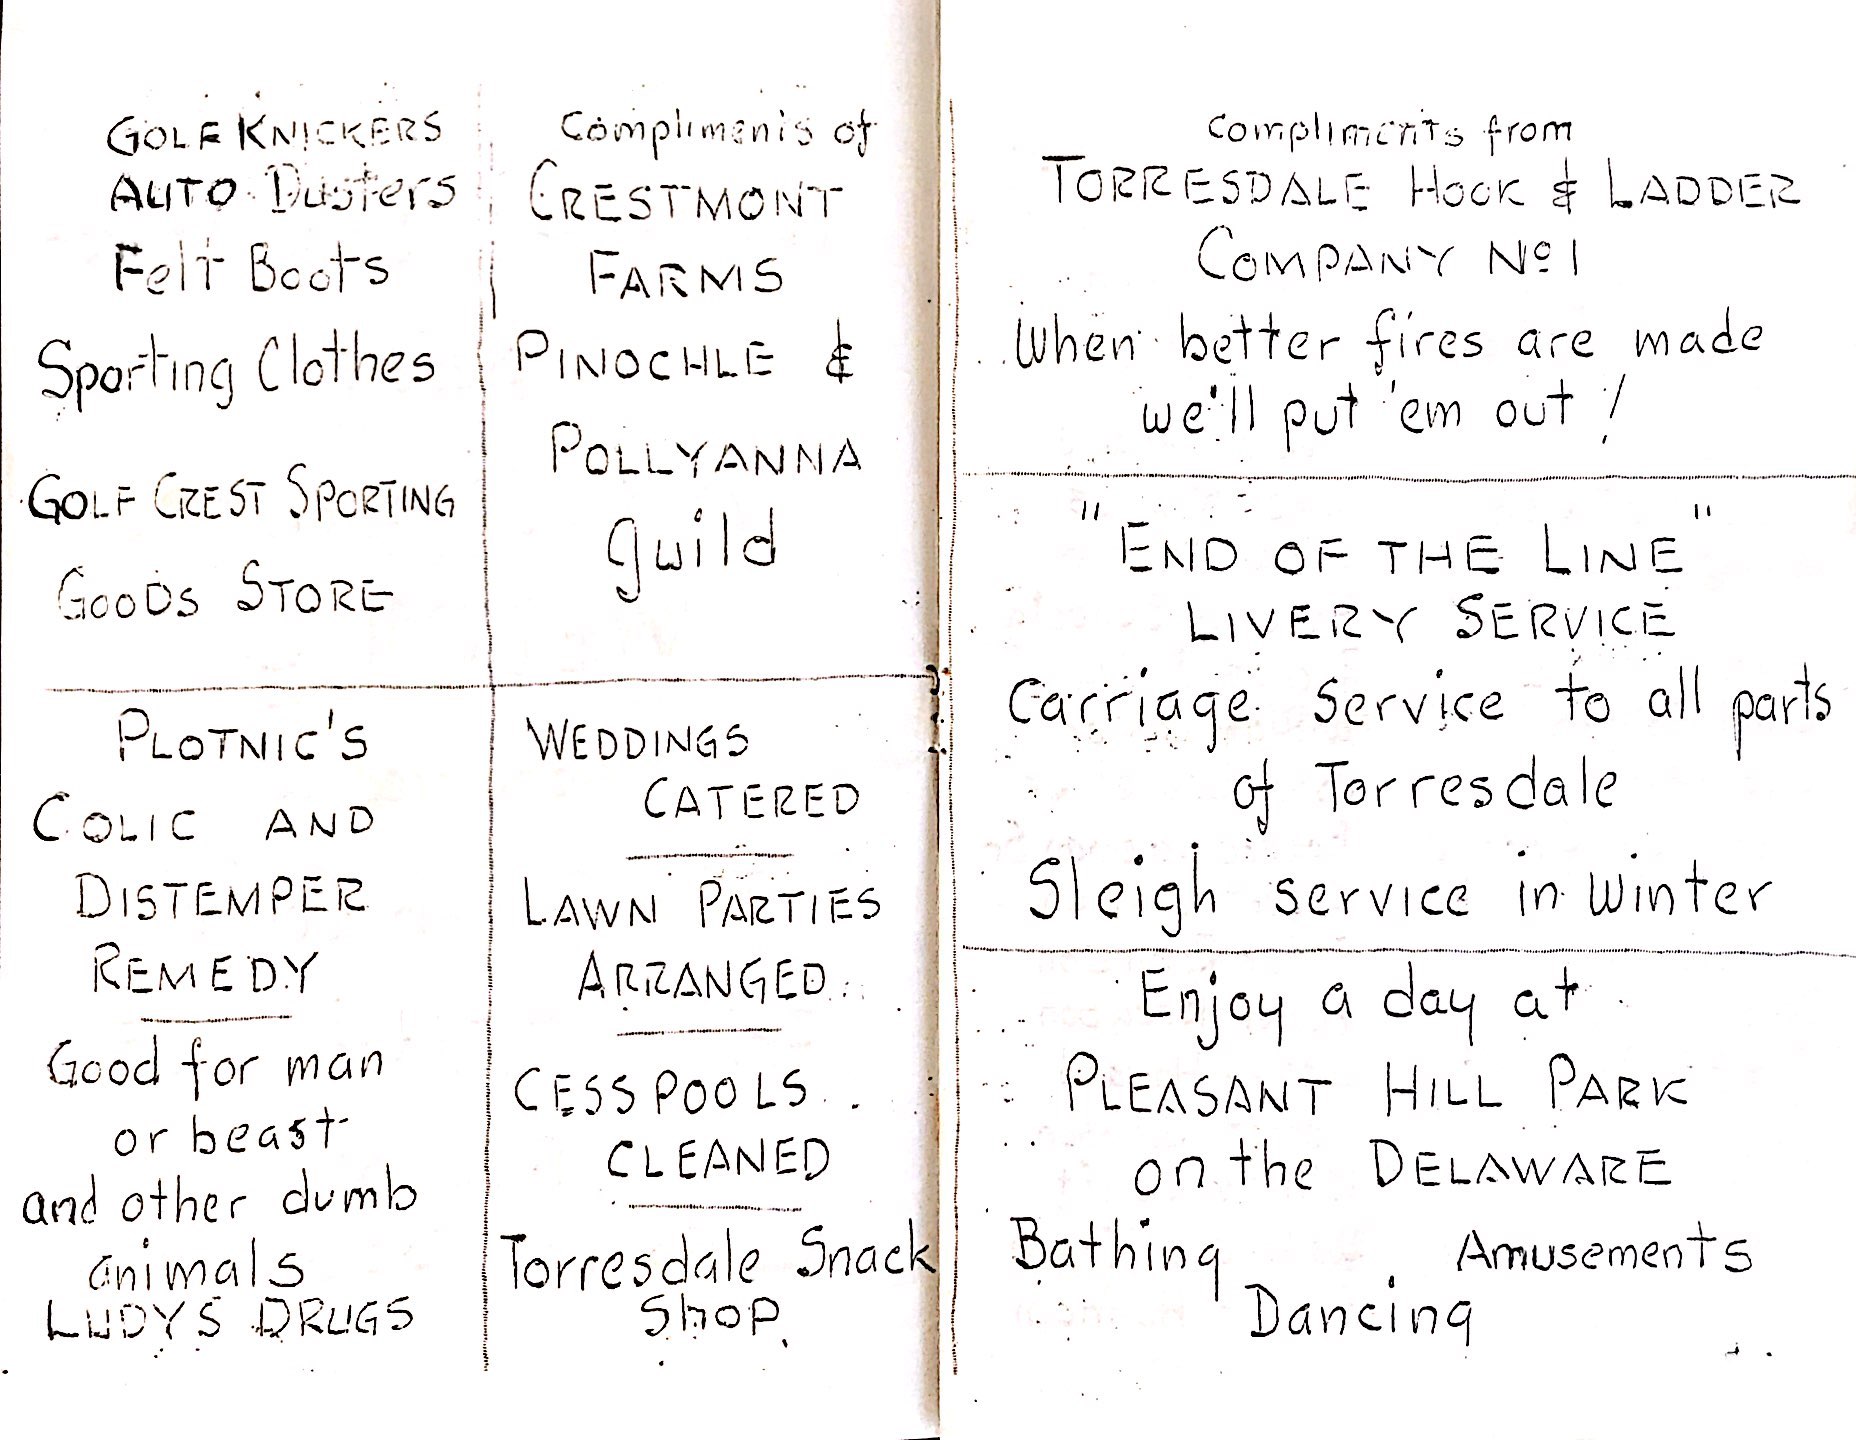 GOLF KNICKERS
AUTO Dusters
Felt Boots
Sporting Clothes
GOLF CREST SPORTING
GOODS STORE
Compliments of
CRESTMONT
FARMS
PINOCHLE &
POLLYANNA
guild
PLOTNIC'S
COLIC AND
DISTEMPER
REMEDY
Good for man
or beast
and other dumb
animals
LUDYS DRUGS
WEDDINGS
CATERED
LAWN PARTIES
ARRANGED
CESSPOOLS
CLEANED
Torresdale Snack
SHOP
Compliments from
TORRESDALE HOOK & LADDER
COMPANY Nº 1
When better fires are made
we'll put 'em out!
"END OF THE LINE"
LIVERY SERVICE
Carriage Service to all parts
of Torresdale
Sleigh service in Winter
Enjoy a day at
PLEASANT HILL PARK
on the DELAWARE
Bathing Amusements
Dancing